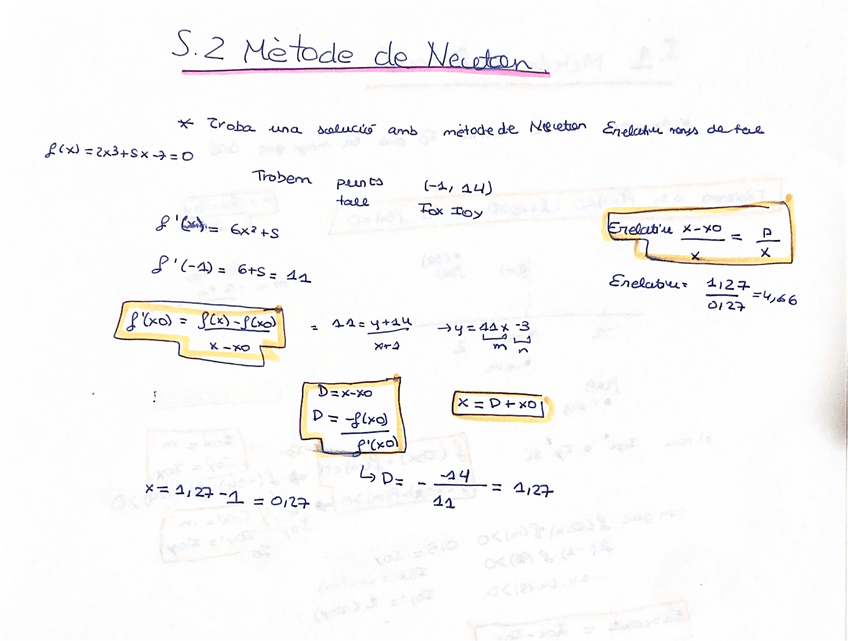 5.2 Mètode de Newton
* Troba una solució amb mètode de Newton Erelatiu menys de tall
f(x)=2x3+5x-7=0
Trobem punts (-1, 14)
tall Iox Ioy
f'(x) = 6x²+5
f'(-1) = 6+5 = 11
Erelatiu x-x0/x = D/x
Erelatiu = 1,27/0,27 = 4,66
f'(x0) = f(x)-f(x0)/x-x0 = 11 = y+14/x+1 → y = 11x -3
m n
⋮
D = x-x0
D = -f(x0)/f'(x0)
x = D + x0
↳ D = - -14/11 = 1,27
x = 1,27-1 = 0,27